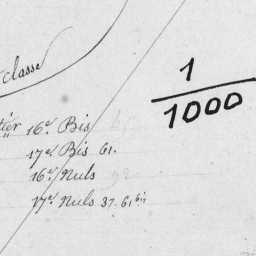 classe
1
1000
16e Bis
17e Bis 61.
16e Nuls
17e Nuls 37. 61 bis